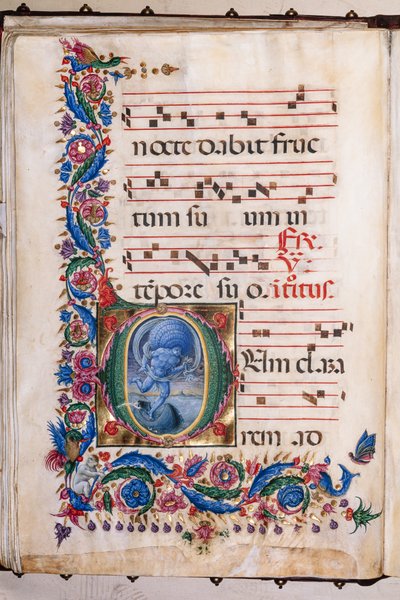 nocte dabit fruc
tum su um in
FER.
V.
tēpore su o. itͦitus.
DUm clama
rem ad